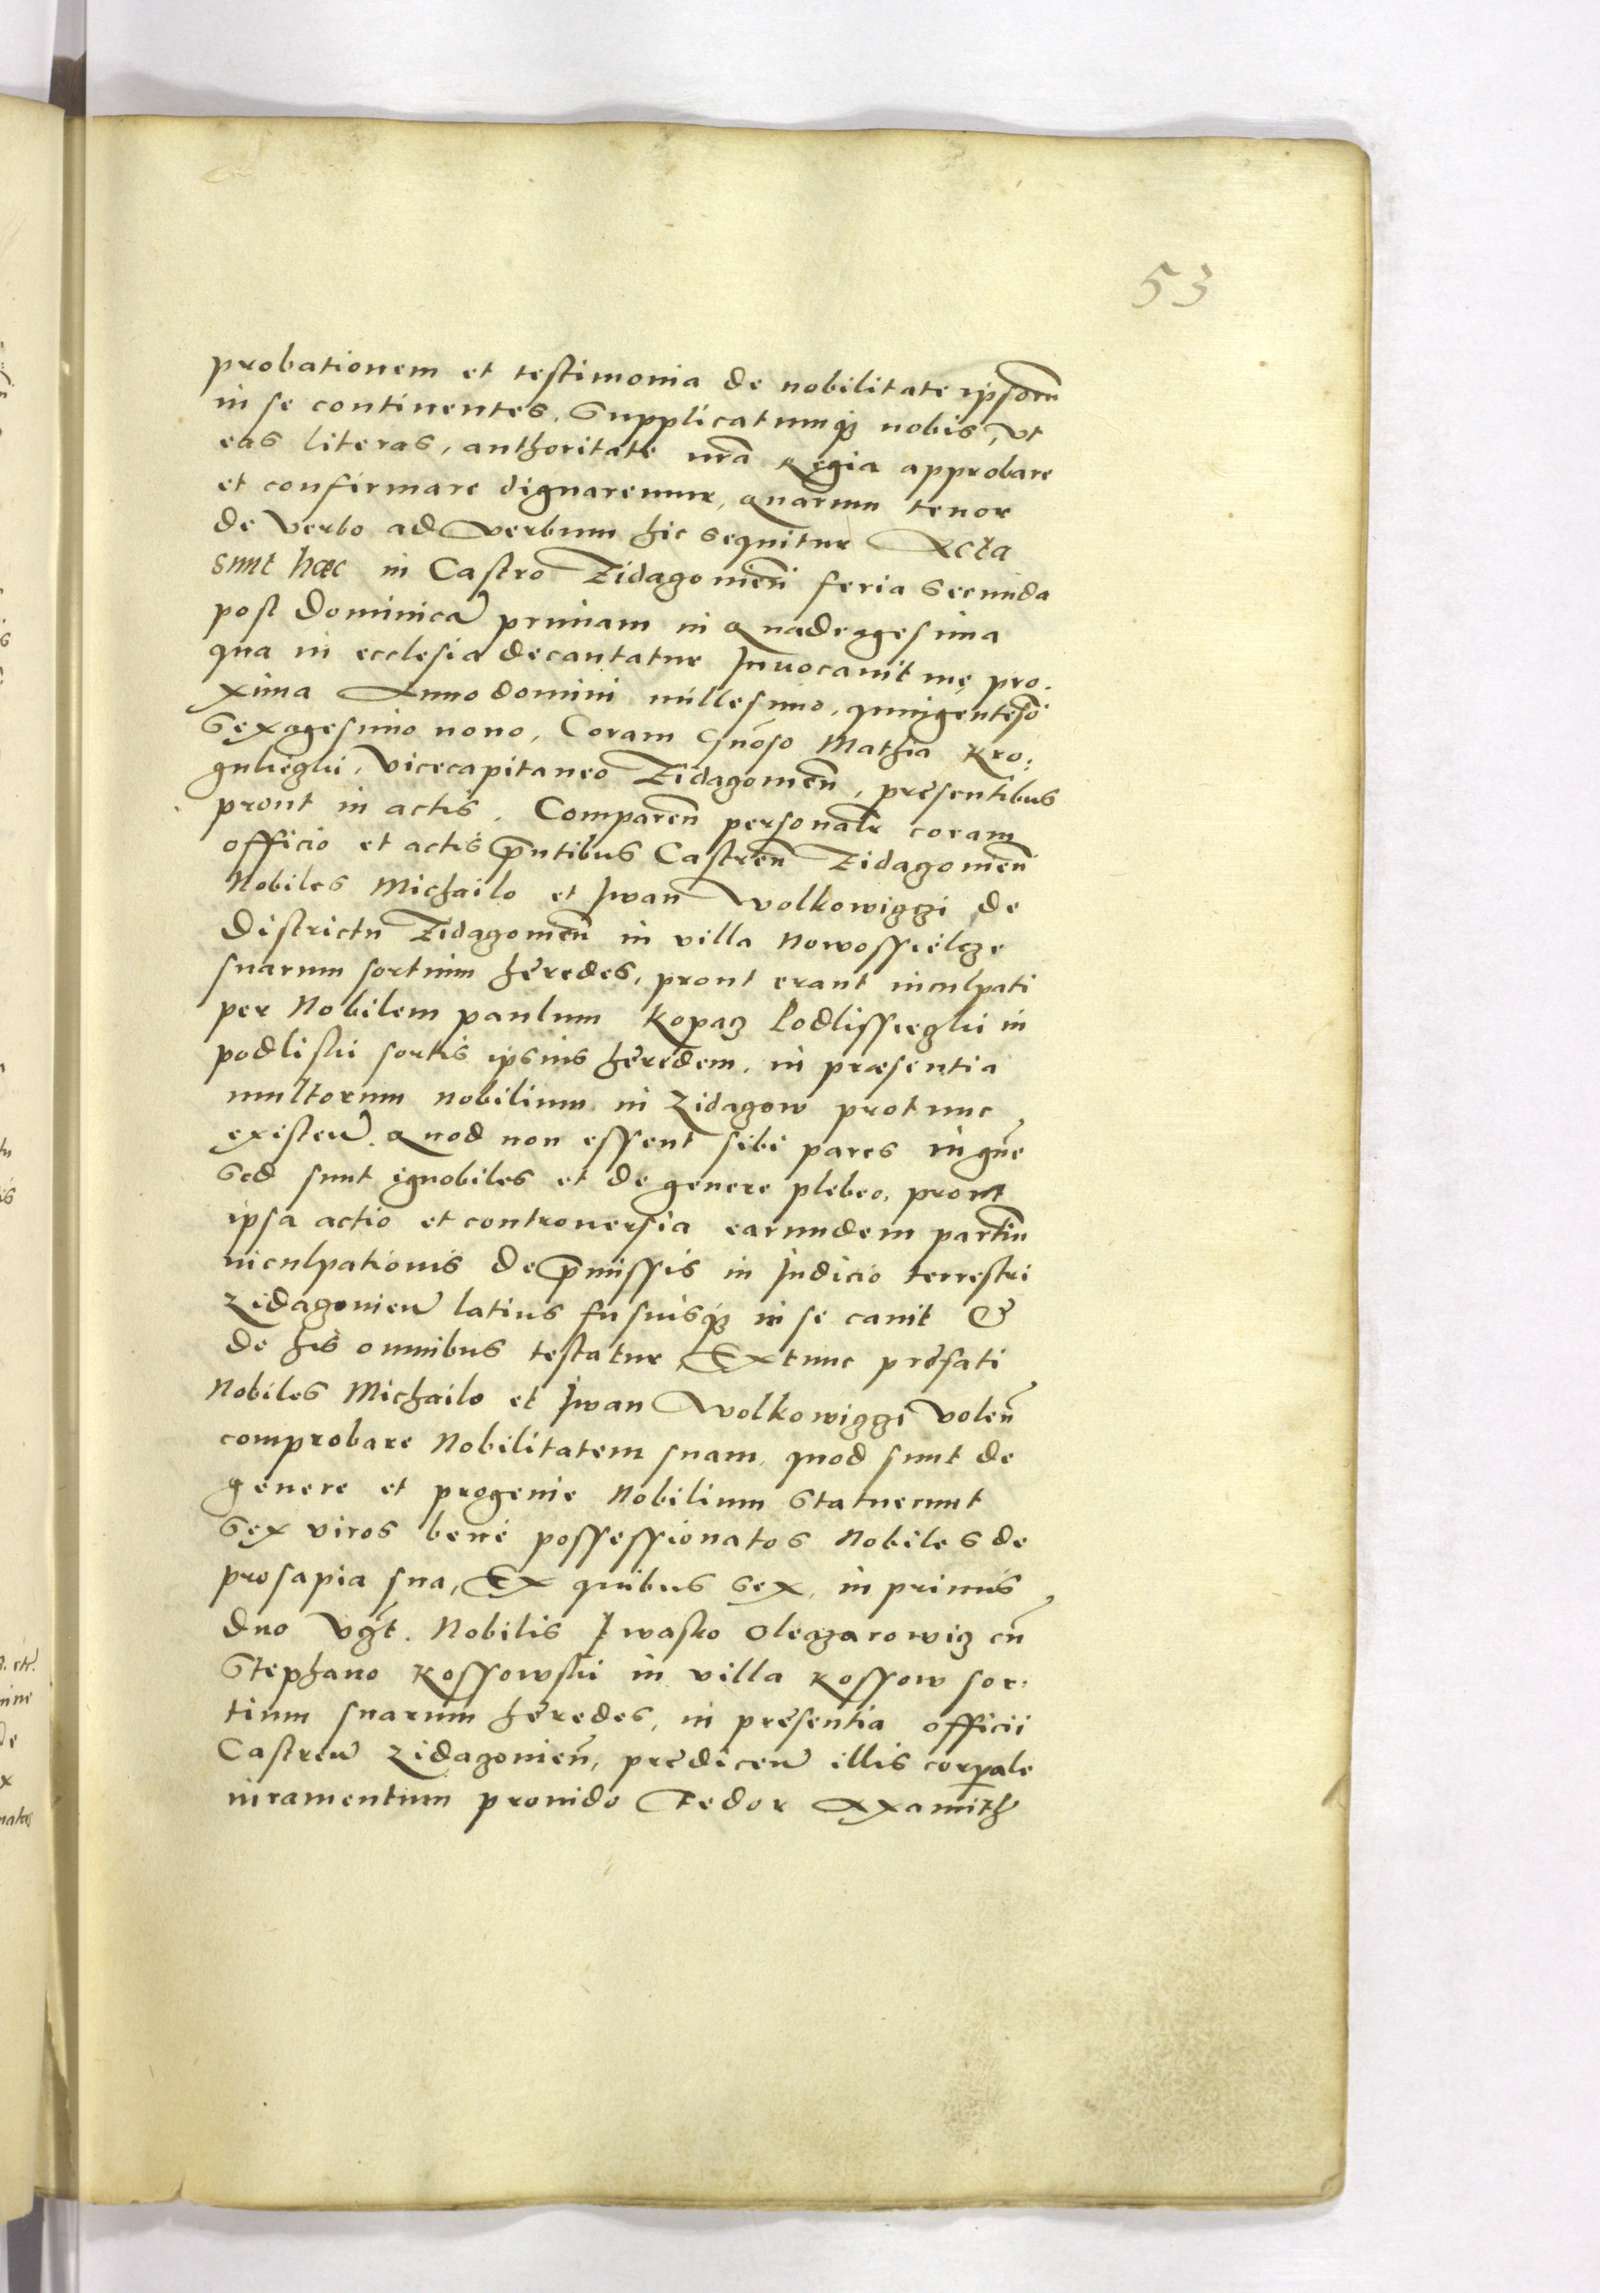 53
probationem et testimonia de nobilitate ipsorū
in se continentes. Supplicatumqꝫ nobis, vt
eas literas, authoritate nrā Regia approbare
et confirmare dignaremur, quarum tenor
de verbo ad verbum hic sequitur Acta
sunt hæc in Castro Zidazomieñ feria secunda
post Dominicā primam in Quadragesima
qua in ecclesia decantatur Inuocauit me, pro.
xima Anno domini millesimo, quingentesō
Sexagesimo nono, Coram Gn̄oso Mathia Kro:
, Vicecapitaneo Zidagomeñ, presentibus
prout in actis. Compareñ personalr coram
officio et actis p̄ntibus Castreñ Zidagomeñ
Nobiles Michailo et Iwan Wolkowiczi de
Districtu Zidagomeñ in villa Nowossielcze
suarum sortium hęredes, prout erant inculpati
per Nobilem paulum Kopacz in
podliski sortis ipsius hęredem, in præsentia
multorum nobilium in Zidagow protunc
existeñ. Quod non essent sibi pares in gn̄e
Sed sunt ignobiles et de genere plebeo, prout
ipsa actio et controuersia earundem partiū
inculpationis de p̄missis in Iudicio terrestri
Zidagomieñ latius fusiusqꝫ in se canit &
de his omnibus testatur, Extunc pręfati
Nobiles Michailo et Iwan Wolkowiczi Voleñ
comprobare Nobilitatem suam, quod sunt de
genere et progenie Nobilium Statuerunt
Sex viros benè possessionatos Nobiles de
prosapia sua, Ex quibus sex, in primis
duo Vgt̄. Nobilis Iwasko Oleczarowicz cū
Stephano Kossowski in villa Kossow sor:
tium suarum hęredes, in pręsentia officii
Castreñ Zidagomieñ, prędiceñ illis corꝑale
iuramentum prouido Fedor Axamith